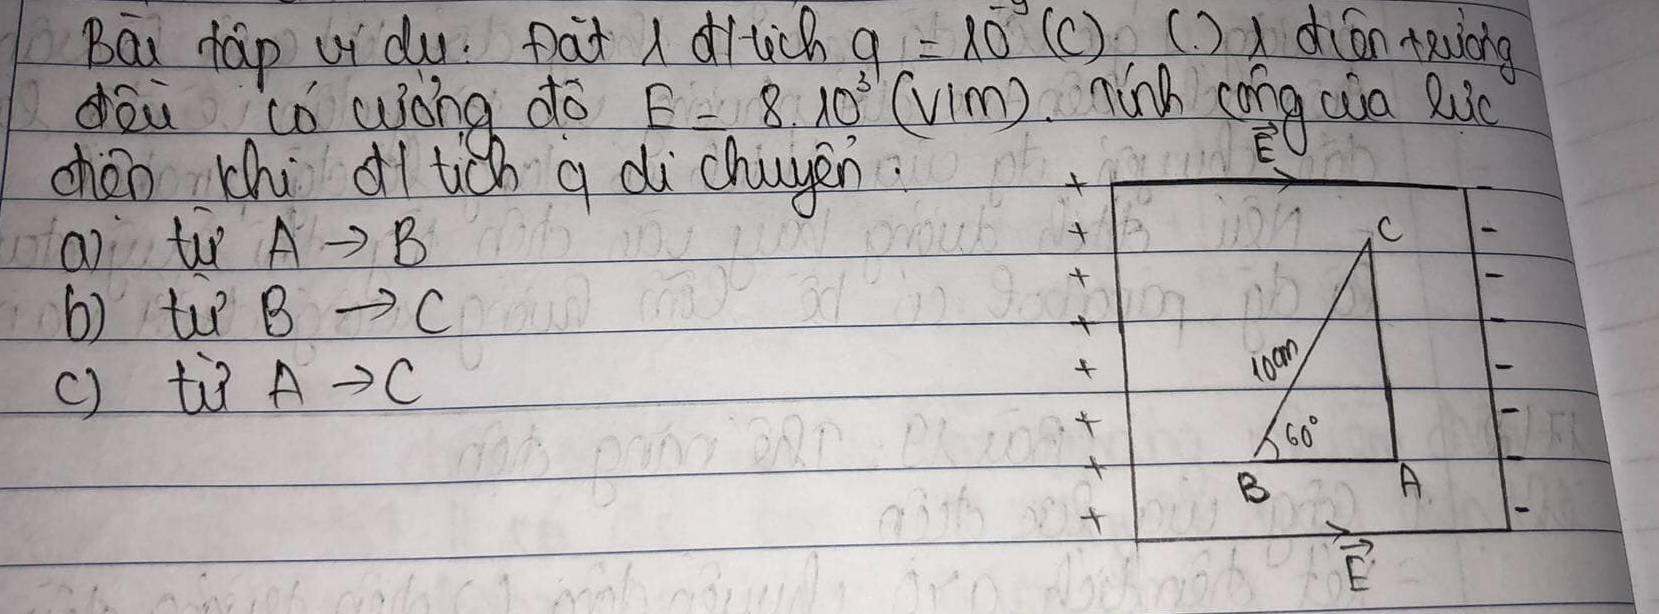 Bài tập ví dụ. Đặt 1 đ/tích q = 10⁻⁹ (C). (.) 1 điện trường
đều có cường độ E = 8.10³ (V/m). Tính công của lực
điện khi đ/tích q di chuyển.
a) từ A → B
b) từ B → C
c) từ A → C
E
+ -
+ C -
+ -
+ -
10cm
+ -
+ 60° -
+ -
B A
+ -
E